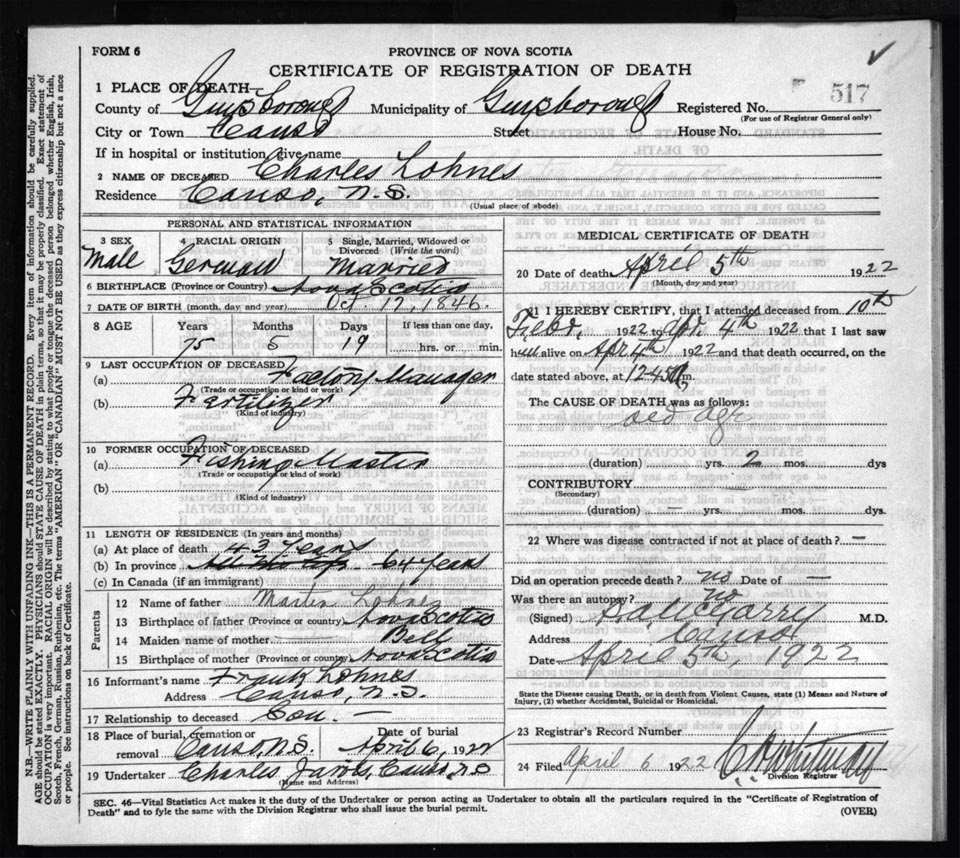 FORM 6
PROVINCE OF NOVA SCOTIA
CERTIFICATE OF REGISTRATION OF DEATH
1 PLACE OF DEATH—
County of Guysborough Municipality of Guysborough Registered No. 517
(For use of Registrar General only)
City or Town Canso Street House No.
If in hospital or institution, give name
2 NAME OF DECEASED Charles Lohnes
Residence Canso, N.S.
(Usual place of abode)
PERSONAL AND STATISTICAL INFORMATION
3 SEX Male
4 RACIAL ORIGIN German
5 Single, Married, Widowed or Divorced (Write the word) Married
6 BIRTHPLACE (Province or Country) Nova Scotia
7 DATE OF BIRTH (month, day and year) Oct. 17, 1846.
8 AGE Years Months Days If less than one day,
75 5 19 hrs. or min.
9 LAST OCCUPATION OF DECEASED
(a) Factory Manager
(Trade or occupation or kind or work)
(b) Fertilizer
(Kind of industry)
10 FORMER OCCUPATION OF DECEASED
(a) Fishing Master
(Trade or occupation or kind of work)
(b)
(Kind of industry)
11 LENGTH OF RESIDENCE (In years and months)
(a) At place of death 43 Years
(b) In province 64 Years
(c) In Canada (if an immigrant)
Parents
12 Name of father Martin Lohnes
13 Birthplace of father (Province or country) Nova Scotia
14 Maiden name of mother Bell
15 Birthplace of mother (Province or country) Nova Scotia
16 Informant's name Frank Lohnes
Address Canso, N.S.
17 Relationship to deceased Son. —
18 Place of burial, cremation or removal Canso, N.S. Date of burial April 6, 1922
19 Undertaker Charles Jarvis, Canso, N.S
(Name and Address)
MEDICAL CERTIFICATE OF DEATH
20 Date of death April 5th 1922
(Month, day and year)
21 I HEREBY CERTIFY, that I attended deceased from 10th
Feby. 1922 to Apr. 4th 1922 that I last saw
him alive on Apr 4th 1922 and that death occurred, on the
date stated above, at 12.45 m.
The CAUSE OF DEATH was as follows:
old age
(duration) yrs. 2 mos. dys
CONTRIBUTORY
(Secondary)
(duration) — yrs. mos. dys.
22 Where was disease contracted if not at place of death? —
Did an operation precede death? no Date of —
Was there an autopsy? no
(Signed) M.D.
Address Canso
Date April 5th, 1922
State the Disease causing Death, or in death from Violent Causes, state (1) Means and Nature of
Injury, (2) whether Accidental, Suicidal or Homicidal.
23 Registrar's Record Number
24 Filed April 6 1922
Division Registrar
SEC. 46—Vital Statistics Act makes it the duty of the Undertaker or person acting as Undertaker to obtain all the particulars required in the "Certificate of Registration of
Death" and to fyle the same with the Division Registrar who shall issue the burial permit. (OVER)
N.B.—WRITE PLAINLY WITH UNFADING INK—THIS IS A PERMANENT RECORD. Every item of information should be carefully supplied.
AGE should be stated EXACTLY. PHYSICIANS should STATE CAUSE OF DEATH in plain terms, so that it may be properly classified. Exact statement of
OCCUPATION is very important. RACIAL ORIGIN will be described by stating to what people or tongue the deceased person belonged whether English, Irish,
Scotch, French, German, Russian, Ruthenian, etc. The terms "AMERICAN" OR "CANADIAN" MUST NOT BE USED as they express citizenship but not a race
or people. See instructions on back of Certificate.